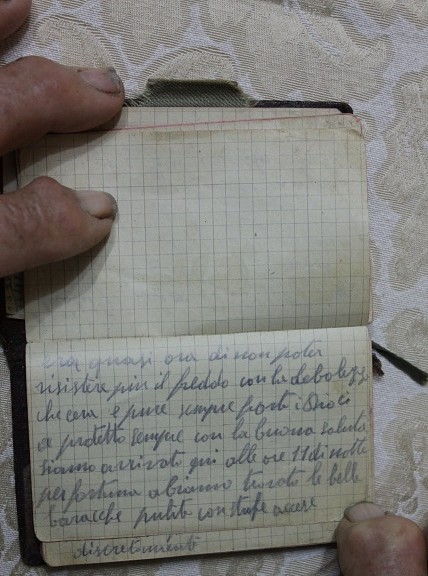 era quasi ora di non poter
risistere piu il freddo con la debolezza
che cera e pure sempre forti Dio ci
a protetto sempre con la buona salute
siamo arrivato qui alle ore 11 di notte
per fortuna abiamo trovato le belle
baracche pulite con stufe accese
discretamente